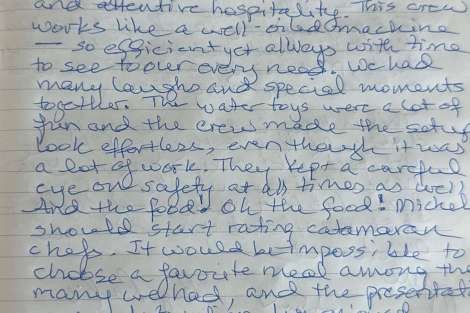 and attentive hospitality. This crew
works like a well-oiled machine
— so efficient yet always with time
to see to our every need. We had
many laughs and special moments
together. The water toys were a lot of
fun and the crew made the setup
look effortless, even though it was
a lot of work. They kept a careful
eye on safety at all times as well
And the food! Oh the food! Michel
should start rating catamaran
chefs. It would be impossible to
choose a favorite meal among the
many we had, and the presentat